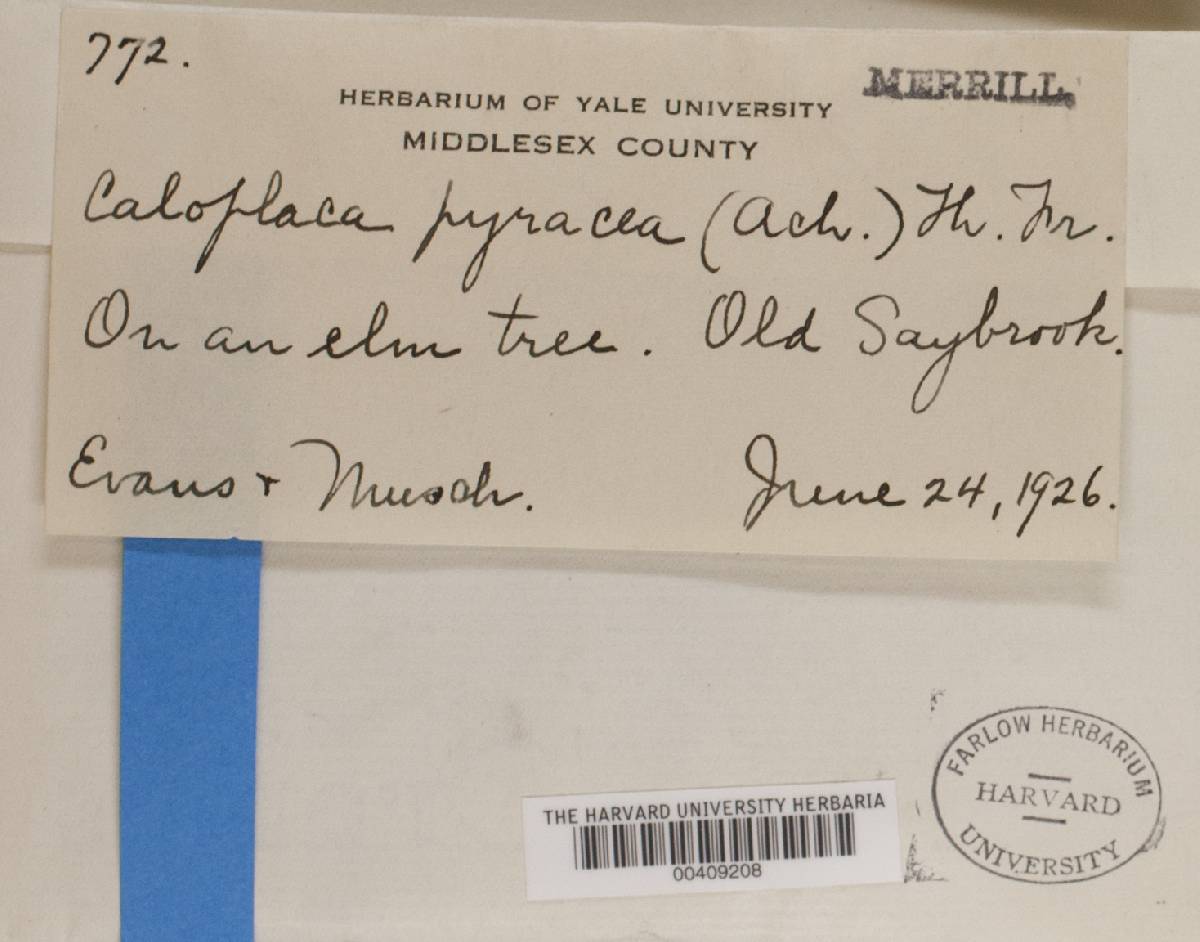 772.
MERRILL
HERBARIUM OF YALE UNIVERSITY
MIDDLESEX COUNTY
Caloplaca pyracea (Ach.) Th. Fr.
On an elm tree. Old Saybrook.
Evans + Musch. June 24, 1926.
THE HARVARD UNIVERSITY HERBARIA
00409208
FARLOW HERBARIUM
HARVARD
UNIVERSITY